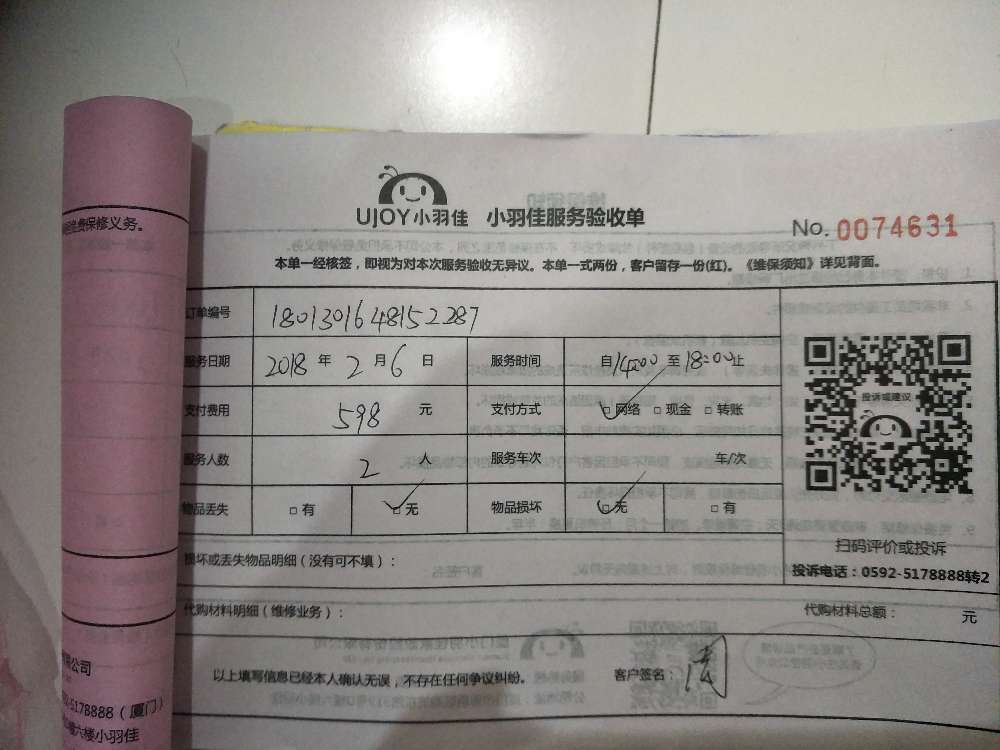 UJOY小羽佳 小羽佳服务验收单
No. 0074631
本单一经核签，即视为对本次服务验收无异议。本单一式两份，客户留存一份(红)。《维保须知》详见背面。
订单编号 1801301648152287
服务日期 2018 年 2 月 6 日 服务时间 自14:00 至 18:00止
支付费用 598 元 支付方式 □网络 □现金 □转账
服务人数 2 人 服务车次 车/次
物品丢失 □有 □无 物品损坏 □无 □有
投诉或建议
扫码评价或投诉
投诉电话：0592-5178888转2
损坏或丢失物品明细（没有可不填）：
代购材料明细（维修业务）： 代购材料总额： 元
以上填写信息已经本人确认无误，不存在任何争议纠纷。 客户签名：
免费保修义务。
公司
5178888（厦门）
六楼小羽佳